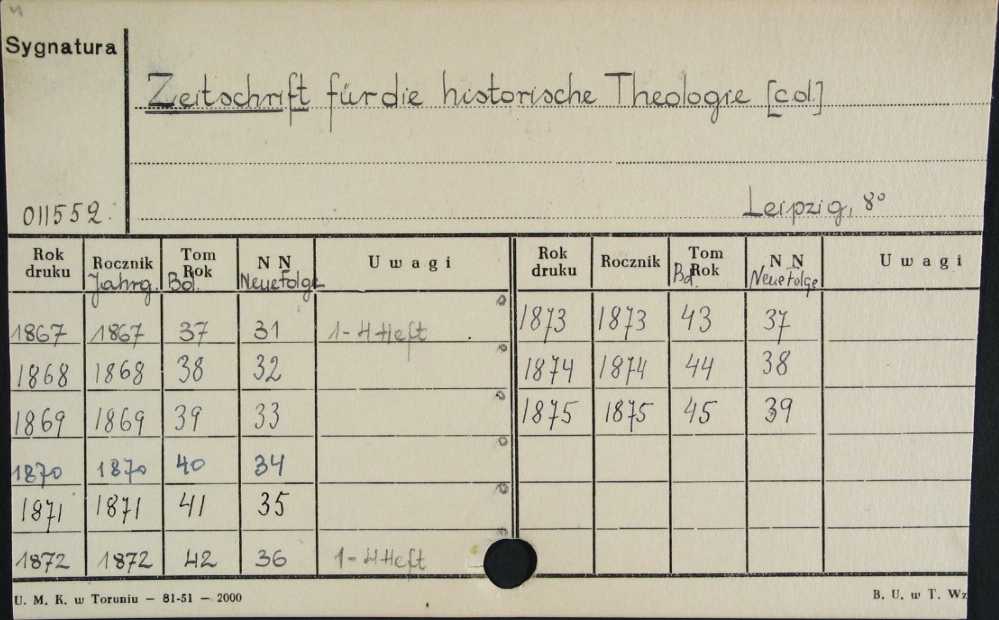 Sygnatura
Zeitschrift für die historische Theologie [col.]
011552.
Leipzig, 8°
Rok druku | Rocznik Jahrg. | Tom Rok Bd. | N N Neue Folge | Uwagi | Rok druku | Rocznik | Tom Rok Bd. | N N Neue Folge | Uwagi
1867 | 1867 | 37 | 31 | 1-4 Heft | 1873 | 1873 | 43 | 37
1868 | 1868 | 38 | 32 | 1874 | 1874 | 44 | 38
1869 | 1869 | 39 | 33 | 1875 | 1875 | 45 | 39
1870 | 1870 | 40 | 34
1871 | 1871 | 41 | 35
1872 | 1872 | 42 | 36 | 1-4 Heft
U. M. K. w Toruniu — 81-51 — 2000
B. U. w T. Wz